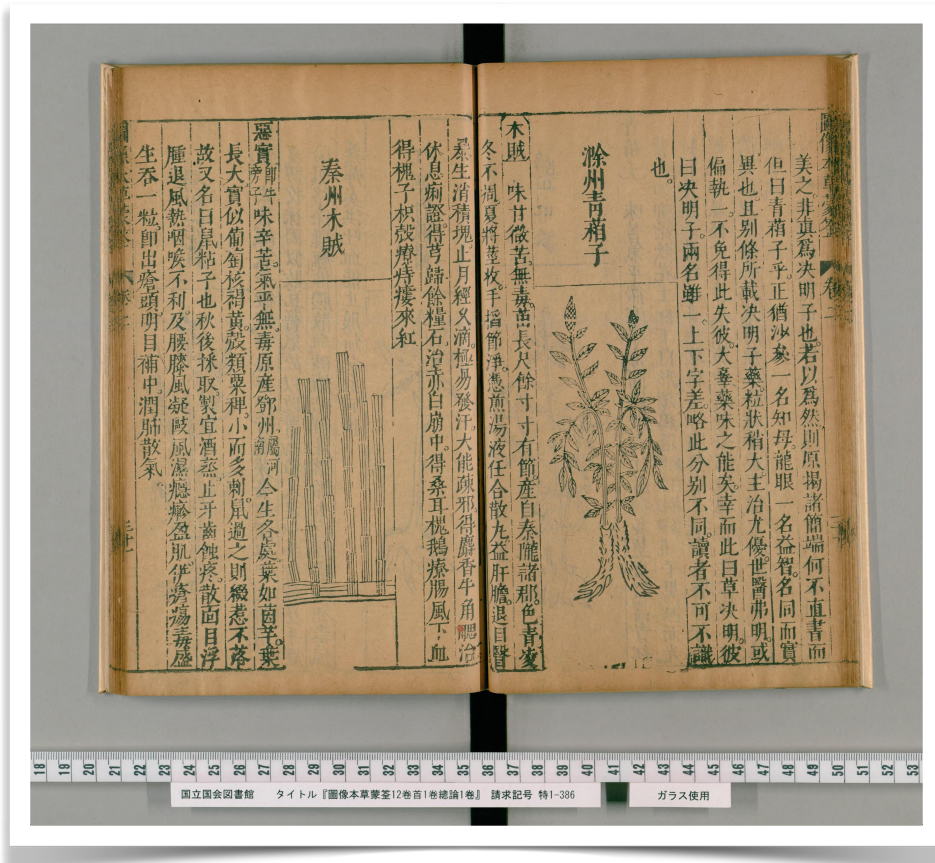 美之非真爲決明子也若以爲然則原揭諸簡端何不直書而
但曰青葙子乎正猶沙參一名知母龍眼一名益智名同而實
異也且别條所載決明子藥粒狀稍大主治尤優世醫弗明或
偏執一不免得此失彼大辜藥味之能矣幸而此曰草決明彼
曰決明子兩名雖一上下字差略此分别不同讀者不可不識
也
滁州青葙子
木賊 味甘微苦無毒苗長尺餘寸寸有節產自秦隴諸郡色青凌
冬不凋夏將莖收手搯節淨慿煎湯液任合散丸益肝膽退目翳
暴生消積塊止月經久滴極易發汗大能疎邪得麝香牛角䚡治
休息痢證得芎歸餘糧石治赤白崩中得桑耳槐鵝療腸風下血
得槐子枳殼療痔瘻來紅
秦州木賊
惡實 即牛蒡子 味辛苦氣平無毒原產鄧州屬河南今生各處葉如茵芋葉
長大實似葡萄核褐黄殼類粟稃小而多刺鼠過之則綴惹不落
故又名曰鼠粘子也秋後採取製宜酒蒸止牙齒蝕疼散面目浮
腫退風熱咽喉不利及腰膝風凝敺風濕癮疹盈肌 瘡瘍毒盛
生吞一粒即出瘡頭明目補中潤肺散氣
18 19 20 21 22 23 24 25 26 27 28 29 30 31 32 33 34 35 36 37 38 39 40 41 42 43 44 45 46 47 48 49 50 51 52 53
国立国会図書館 タイトル『圖像本草蒙筌12巻首1巻總論1巻』 請求記号 特1-386
ガラス使用